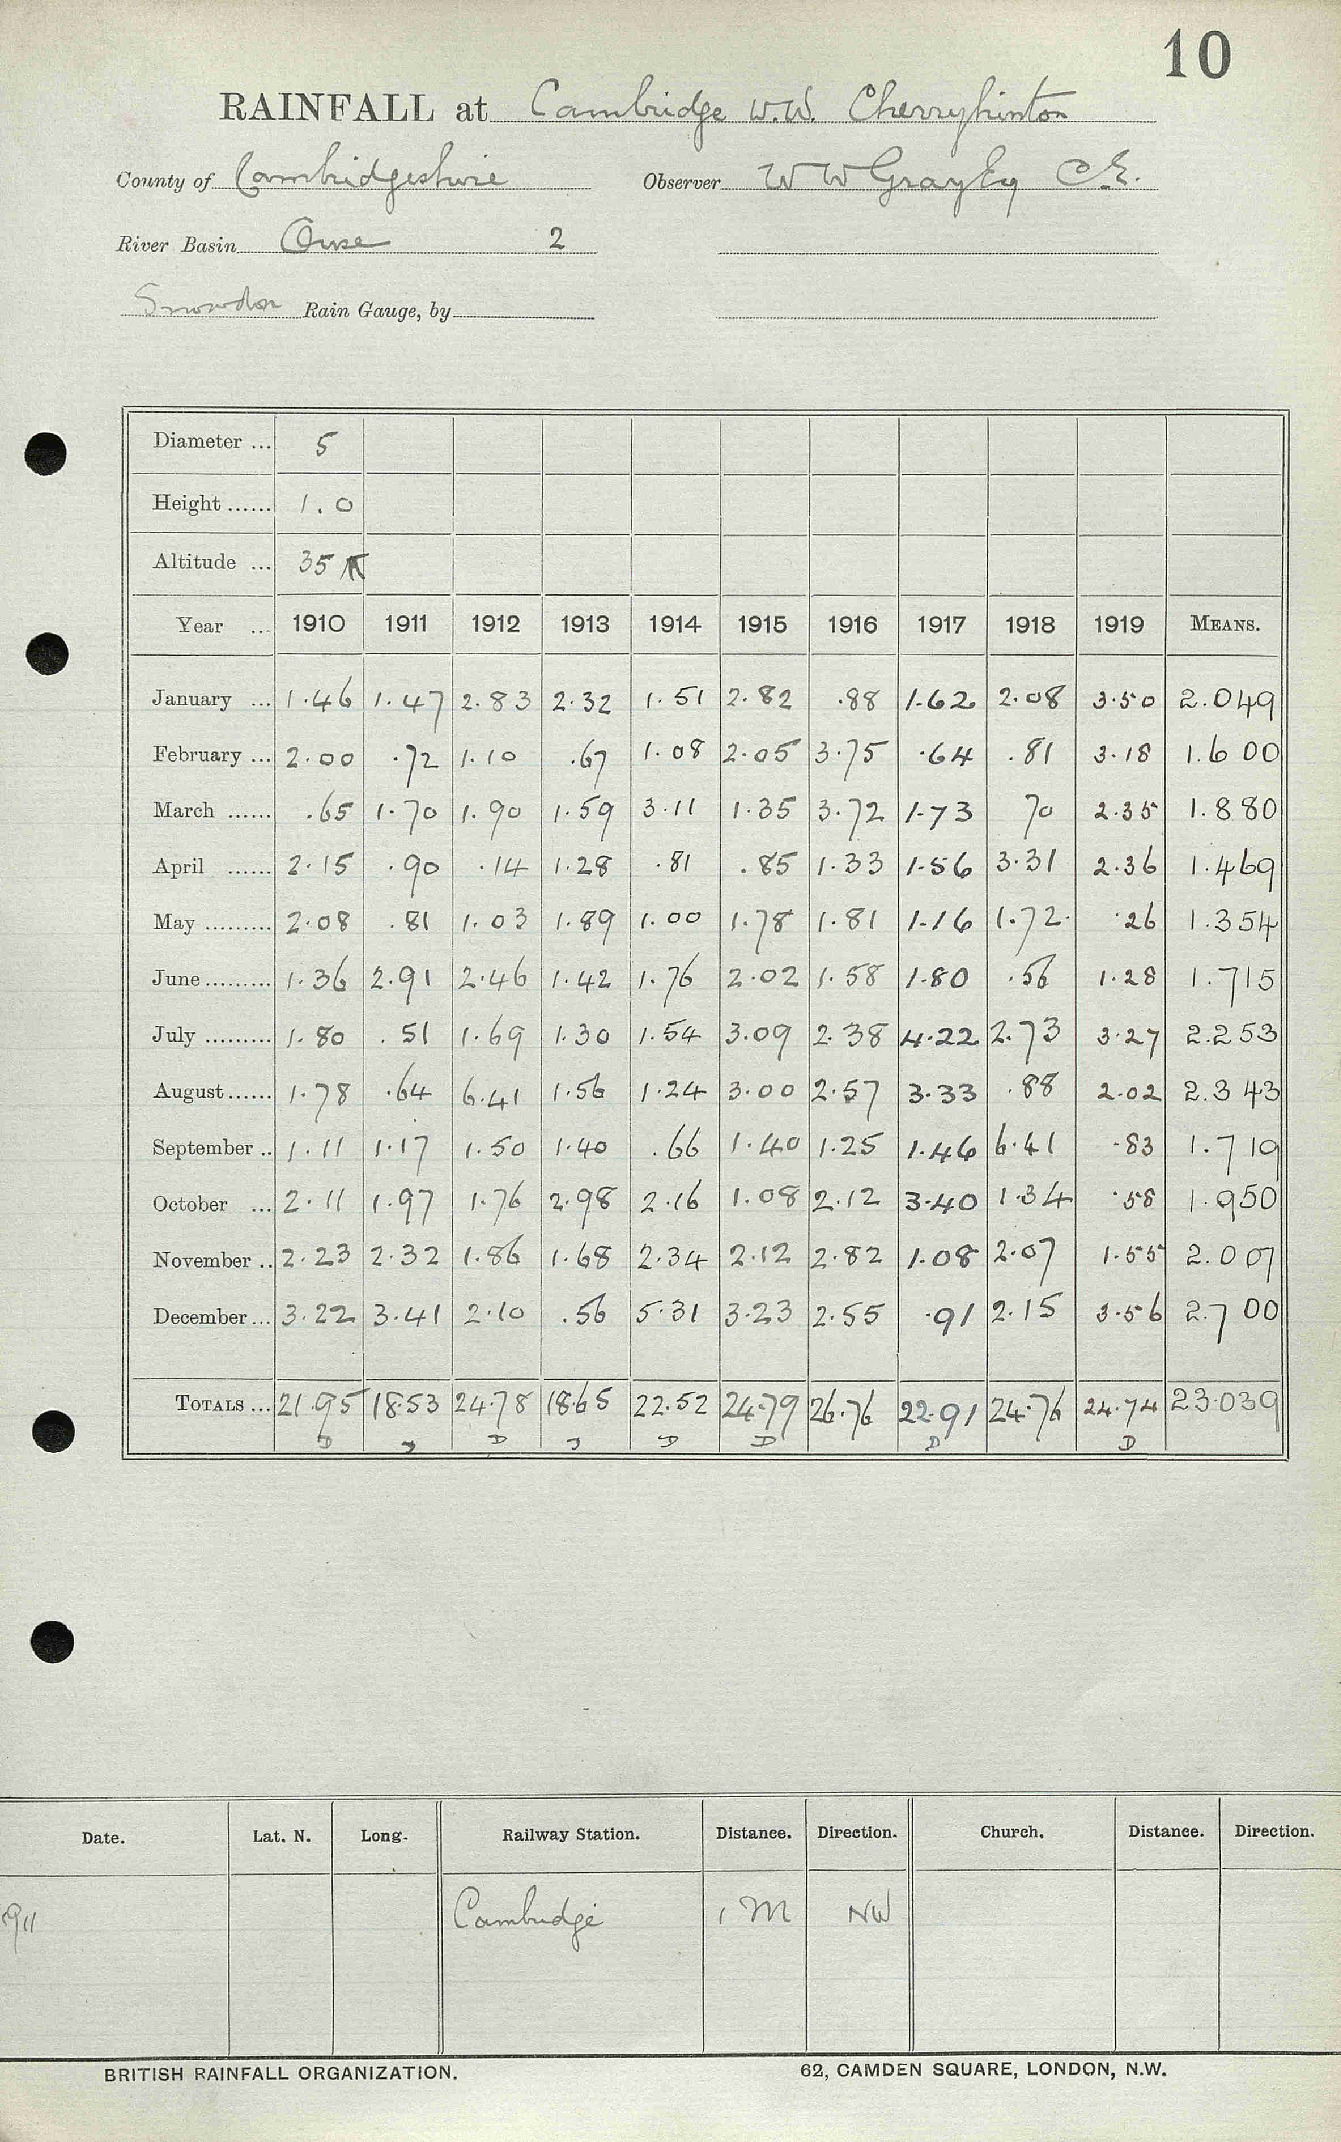 10
RAINFALL at Cambridge W.W. Cherryhinton
County of Cambridgeshire Observer W W Gray Esq C.E.
River Basin Ouse 2
Snowdon Rain Gauge, by
Diameter ... 5
Height ...... 1.0
Altitude ... 35
Year ... 1910 1911 1912 1913 1914 1915 1916 1917 1918 1919 MEANS.
January ... 1.46 1.47 2.83 2.32 1.51 2.82 .88 1.62 2.08 3.50 2.049
February ... 2.00 .72 1.10 .67 1.08 2.05 3.75 .64 .81 3.18 1.600
March ...... .65 1.70 1.90 1.59 3.11 1.35 3.72 1.73 70 2.35 1.880
April ...... 2.15 .90 .14 1.28 .81 .85 1.33 1.56 3.31 2.36 1.469
May ......... 2.08 .81 1.03 1.89 1.00 1.78 1.81 1.16 1.72 .26 1.354
June ......... 1.36 2.91 2.46 1.42 1.76 2.02 1.58 1.80 .56 1.28 1.715
July ......... 1.80 .51 1.69 1.30 1.54 3.09 2.38 4.22 2.73 3.27 2.253
August ...... 1.78 .64 6.41 1.56 1.24 3.00 2.57 3.33 .88 2.02 2.343
September .. 1.11 1.17 1.50 1.40 .66 1.40 1.25 1.46 6.41 .83 1.719
October ... 2.11 1.97 1.76 2.98 2.16 1.08 2.12 3.40 1.34 .58 1.950
November .. 2.23 2.32 1.86 1.68 2.34 2.12 2.82 1.08 2.07 1.55 2.007
December ... 3.22 3.41 2.10 .56 5.31 3.23 2.55 .91 2.15 3.56 2.700
TOTALS ... 21.95 18.53 24.78 18.65 22.52 24.79 26.76 22.91 24.76 24.74 23.039
D J D J D D D D
Date. Lat. N. Long. Railway Station. Distance. Direction. Church. Distance. Direction.
1911 Cambridge 1 M NW
BRITISH RAINFALL ORGANIZATION. 62, CAMDEN SQUARE, LONDON, N.W.